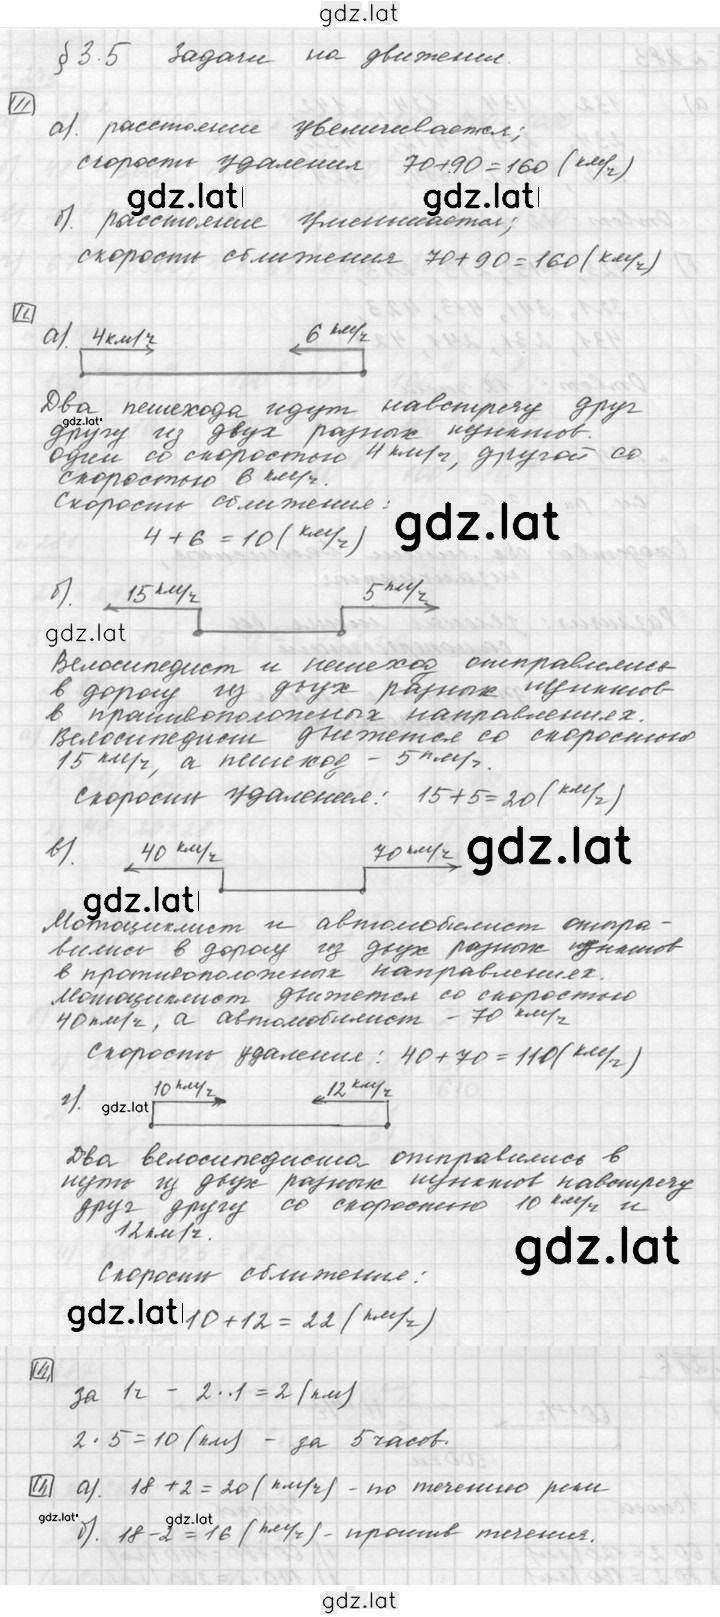 gdz.lat
§ 3.5 Задачи на движение.
а). расстояние увеличивается;
скорость удаления 70+90=160 (км/ч)
gdz.lat gdz.lat
б). расстояние уменьшается;
скорость сближения 70+90=160 (км/ч)
а). 4км/ч 6 км/ч
Два пешехода идут навстречу друг
gdz.lat
другу из двух разных пунктов.
один со скоростью 4км/ч, другой со
скоростью 6 км/ч.
Скорость сближения:
4+6=10 (км/ч)
gdz.lat
б). 15 км/ч 5 км/ч
gdz.lat
Велосипедист и пешеход отправились
в дорогу из двух разных пунктов
в противоположных направлениях.
Велосипедист движется со скоростью
15 км/ч, а пешеход - 5 км/ч.
Скорость удаления: 15+5=20 (км/ч)
в). 40 км/ч 70 км/ч
gdz.lat
gdz.lat
Мотоциклист и автомобилист отпра-
вились в дорогу из двух разных пунктов
в противоположных направлениях.
Мотоциклист движется со скоростью
40км/ч, а автомобилист - 70 км/ч
Скорость удаления: 40+70=110 (км/ч)
г). 10 км/ч 12 км/ч
gdz.lat
Два велосипедиста отправились в
путь из двух разных пунктов навстречу
друг другу со скоростью 10 км/ч и
12км/ч.
gdz.lat
Скорость сближения:
gdz.lat
10+12=22 (км/ч)
за 1ч - 2·1=2 (км)
2·5=10 (км) - за 5 часов.
а). 18+2=20 (км/ч) - по течению реки
gdz.lat gdz.lat
б). 18-2=16 (км/ч) - против течения.
gdz.lat